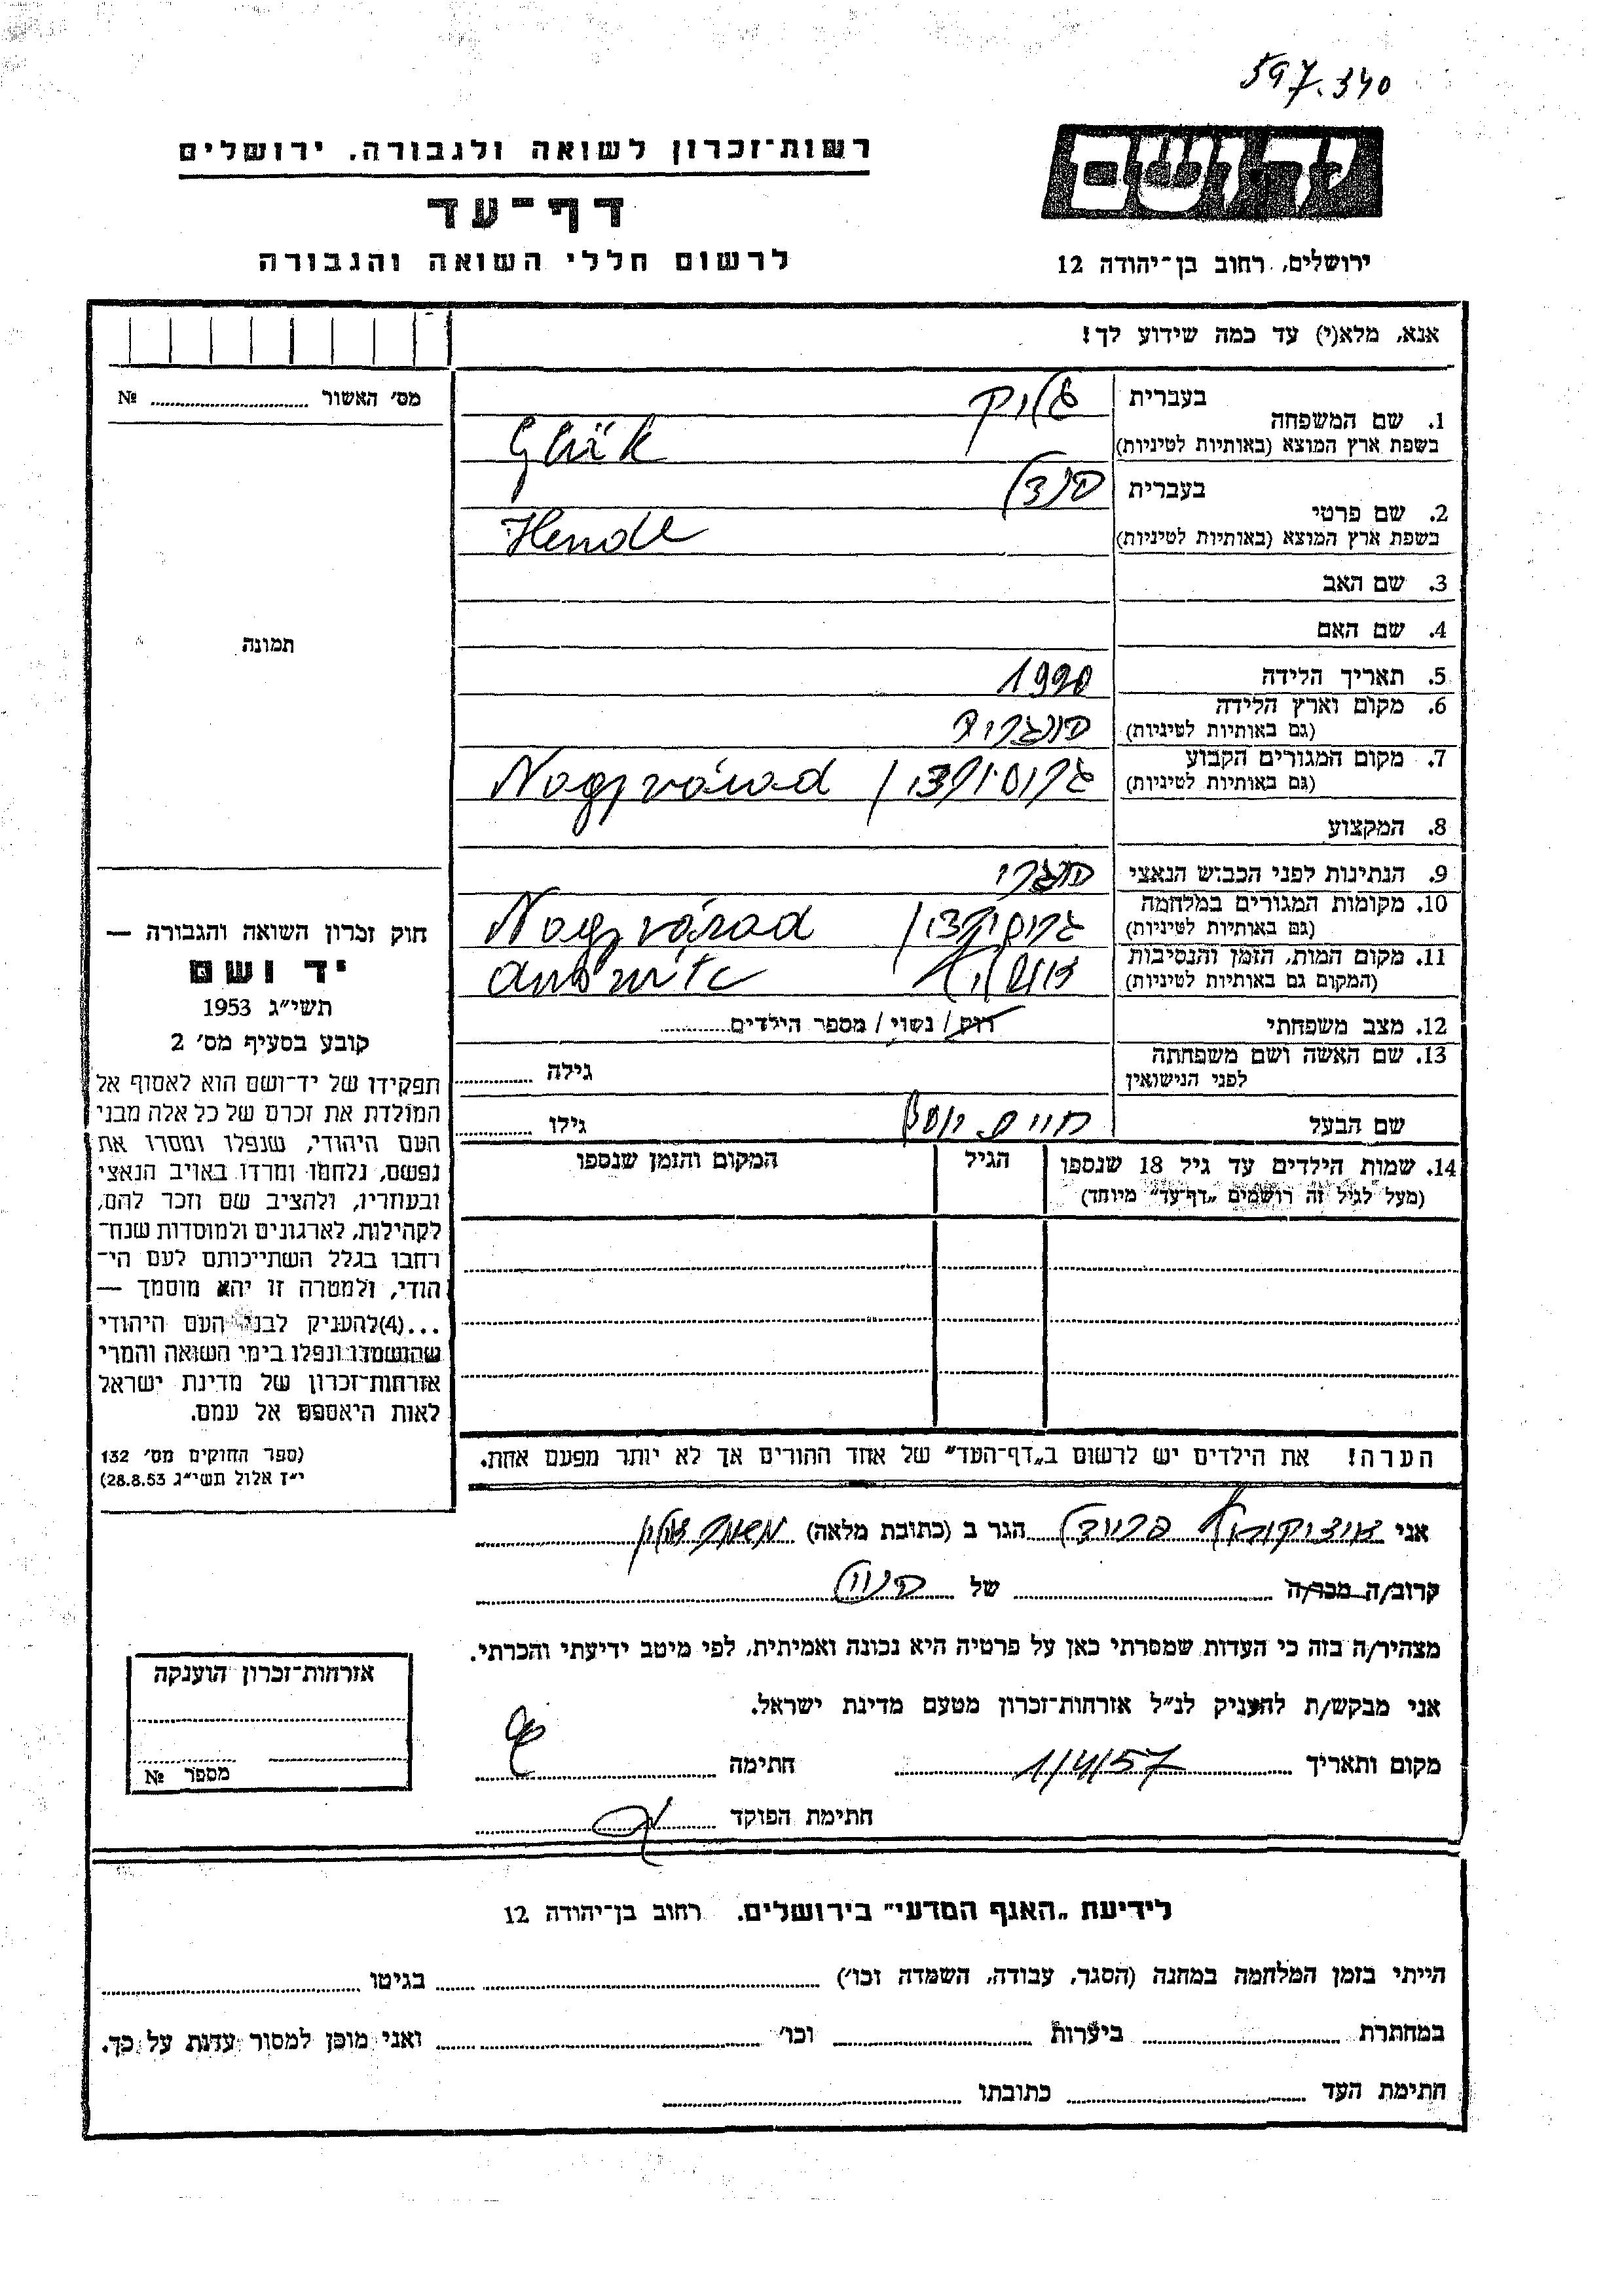 597.340
יד ושם
רשות־זכרון לשואה ולגבורה. ירושלים
דף־עד
לרשום חללי השואה והגבורה
ירושלים, רחוב בן־יהודה 12
אנא, מלא(י) עד כמה שידוע לך!
מס׳ האשור № ..........
1. שם המשפחה
בעברית גליק
בשפת ארץ המוצא (באותיות לטיניות) Glük
2. שם פרטי
בעברית הנדל
בשפת ארץ המוצא (באותיות לטיניות) Hendl
3. שם האב
4. שם האם
תמונה
5. תאריך הלידה 1920
6. מקום וארץ הלידה
(גם באותיות לטיניות) הונגריה
7. מקום המגורים הקבוע
(גם באותיות לטיניות) Nagyvárad /
8. המקצוע
9. הנתינות לפני הכבוש הנאצי הונגרי
10. מקומות המגורים במלחמה
(גם באותיות לטיניות) Nagyvárad /
11. מקום המות, הזמן והנסיבות
(המקום גם באותיות לטיניות)
12. מצב משפחתי רוק / נשוי / מספר הילדים..........
13. שם האשה ושם משפחתה
לפני הנישואין גילה ..........
שם הבעל חיים יוסף גילו ..........
14. שמות הילדים עד גיל 18 שנספו
(מעל לגיל זה רושמים „דף־עד״ מיוחד)
הגיל
המקום והזמן שנספו
חוק זכרון השואה והגבורה —
יד ושם
תשי״ג 1953
קובע בסעיף מס׳ 2
תפקידו של יד־ושם הוא לאסוף אל
המולדת את זכרם של כל אלה מבני
העם היהודי, שנפלו ומסרו את
נפשם, נלחמו ומרדו באויב הנאצי
ובעוזריו, ולהציב שם וזכר להם,
לקהילות, לארגונים ולמוסדות שנח־
רחבו בגלל השתייכותם לעם הי־
הודי, ולמטרה זו יהא מוסמך —
...(4)להעניק לבני העם היהודי
שהושמדו ונפלו בימי השואה והמרי
אזרחות־זכרון של מדינת ישראל
לאות היאספם אל עמם.
(ספר החוקים מס׳ 132
י״ז אלול תשי״ג 28.8.53)
הערה! את הילדים יש לרשום ב„דף־העד״ של אחד ההורים אך לא יותר מפעם אחת.
אני הגר ב (כתובת מלאה)
קרוב/ה מכר/ה .......... של
מצהיר/ה בזה כי העדות שמסרתי כאן על פרטיה היא נכונה ואמיתית, לפי מיטב ידיעתי והכרתי.
אני מבקש/ת להעניק לנ״ל אזרחות־זכרון מטעם מדינת ישראל.
מקום ותאריך 1/4/57 חתימה
חתימת הפוקד
אזרחות־זכרון הוענקה
מספר №
לידיעת „האגף המדעי״ בירושלים. רחוב בן־יהודה 12
הייתי בזמן המלחמה במחנה (הסגר, עבודה, השמדה וכו׳) .......... בגיטו ..........
במחתרת .......... ביערות .......... וכו׳ .......... ואני מוכן למסור עדות על כך.
חתימת העד .......... כתובתו ..........